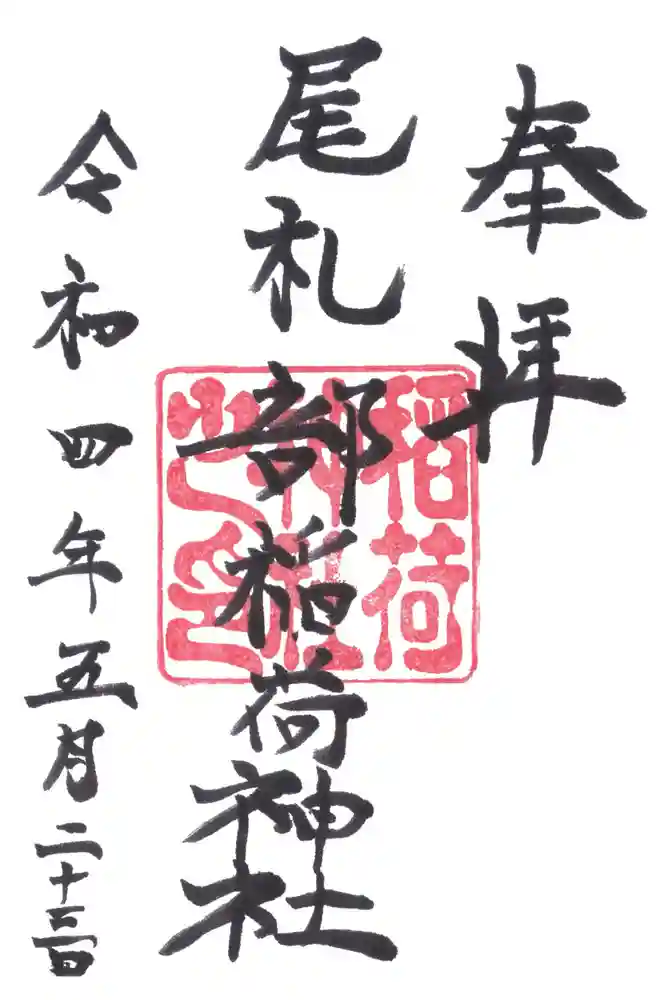 奉拝
尾札部稲荷神社
稲荷
神社
之印
令和四年五月二十三日